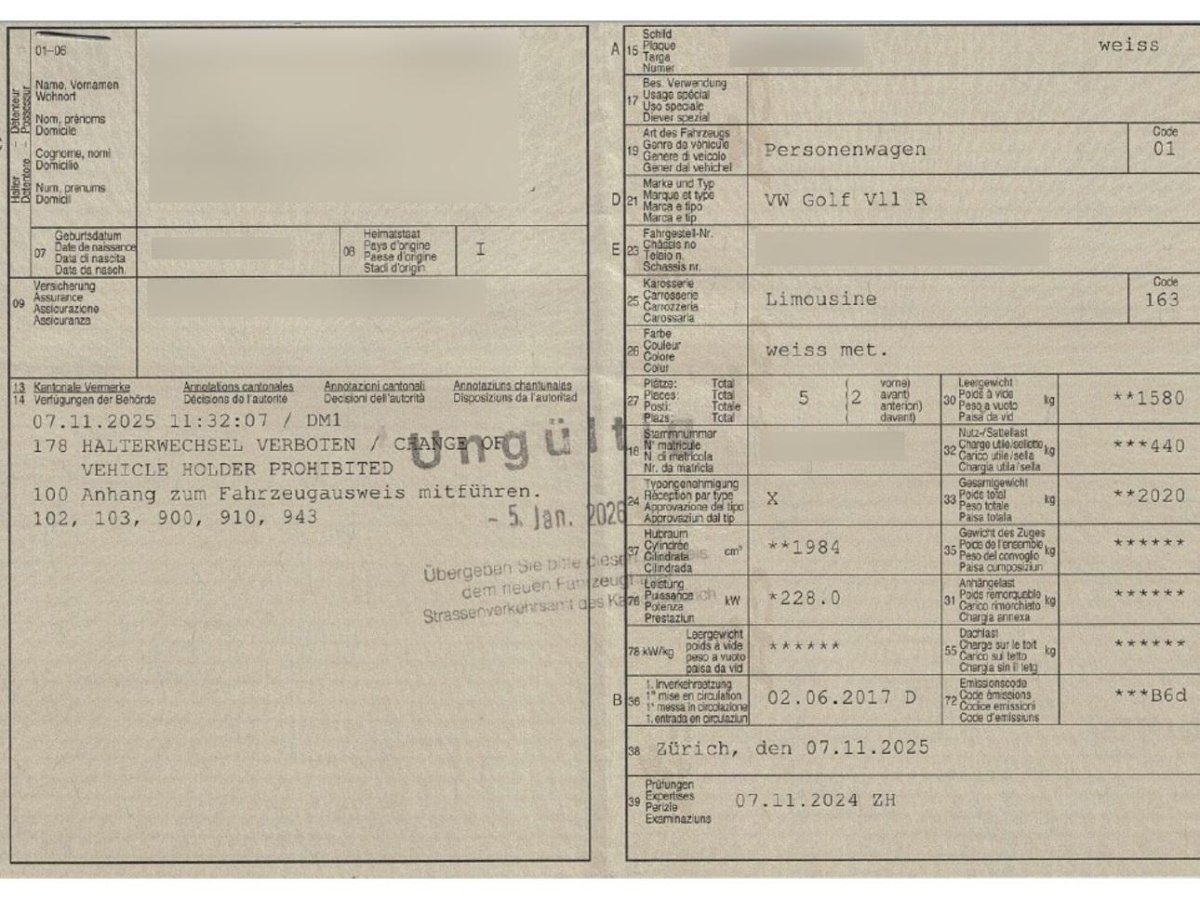 01-06
Halter - Détenteur
Detentore - Possessur
Name, Vornamen
Wohnort
Nom, prénoms
Domicile
Cognome, nomi
Domicilio
Num, prenums
Domicil
07
Geburtsdatum
Date de naissance
Data di nascita
Data da nasch.
08
Heimatstaat
Pays d'origine
Paese d'origine
Stadi d'origin
I
09
Versicherung
Assurance
Assicurazione
Assicuranza
13 Kantonale Vermerke Annotations cantonales Annotazioni cantonali Annotaziuns chantunalas
14 Verfügungen der Behörde Décisions de l'autorité Decisioni dell'autorità Disposiziuns da l'autoritad
07.11.2025 11:32:07 / DM1
178 HALTERWECHSEL VERBOTEN / CHANGE OF
VEHICLE HOLDER PROHIBITED
100 Anhang zum Fahrzeugausweis mitführen.
102, 103, 900, 910, 943
Ungült
- 5. Jan. 2026
Übergeben Sie bitte diesen
dem neuen Fahrzeug
Strassenverkehrsamt des
A 15
Schild
Plaque
Targa
Numer
weiss
17
Bes. Verwendung
Usage spécial
Uso speciale
Diever spezial
19
Art des Fahrzeugs
Genre de véhicule
Genere di veicolo
Gener dal vehichel
Personenwagen
Code
01
D 21
Marke und Typ
Marque et type
Marca e tipo
Marca e tip
VW Golf Vll R
E 23
Fahrgestell-Nr.
Châssis no
Telaio n.
Schassis nr.
25
Karosserie
Carrosserie
Carrozzeria
Carossaria
Limousine
Code
163
26
Farbe
Couleur
Colore
Colur
weiss met.
27
Plätze: Total
Places: Total
Posti: Totale
Plazs: Total
5 (2
vorne)
avant)
anterion)
davant)
30
Leergewicht
Poids à vide
Peso a vuoto
Paisa da vid
kg
**1580
18
Stammnummer
N° matricule
N. di matricola
Nr. da matricla
32
Nutz-/Sattellast
Charge utile/sellette
Carico utile/sella
Chargia utila/sella
kg
***440
24
Typengenehmigung
Réception par type
Approvazione del tipo
Approvaziun dal tip
X
33
Gesamtgewicht
Poids total
Peso totale
Paisa totala
kg
**2020
37
Hubraum
Cylindrée
Cilindrata
Cilindrada
cm³
**1984
35
Gewicht des Zuges
Poids de l'ensemble
Peso del convoglio
Paisa cumposiziun
kg
******
76
Leistung
Puissance
Potenza
Prestaziun
kW
*228.0
31
Anhängelast
Poids remorquable
Carico rimorchiato
Chargia annexa
kg
******
78 kW/kg
Leergewicht
poids à vide
peso a vuoto
paisa da vid
******
55
Dachlast
Charge sur le toit
Carico sul tetto
Chargia sin il tetg
kg
******
B 36
1. Inverkehrsetzung
1re mise en circulation
1a messa in circolazione
1. entrada en circulaziun
02.06.2017 D
72
Emissionscode
Code émissions
Codice emissioni
Code d'emissiuns
***B6d
38 Zürich, den 07.11.2025
39
Prüfungen
Expertises
Perizie
Examinaziuns
07.11.2024 ZH